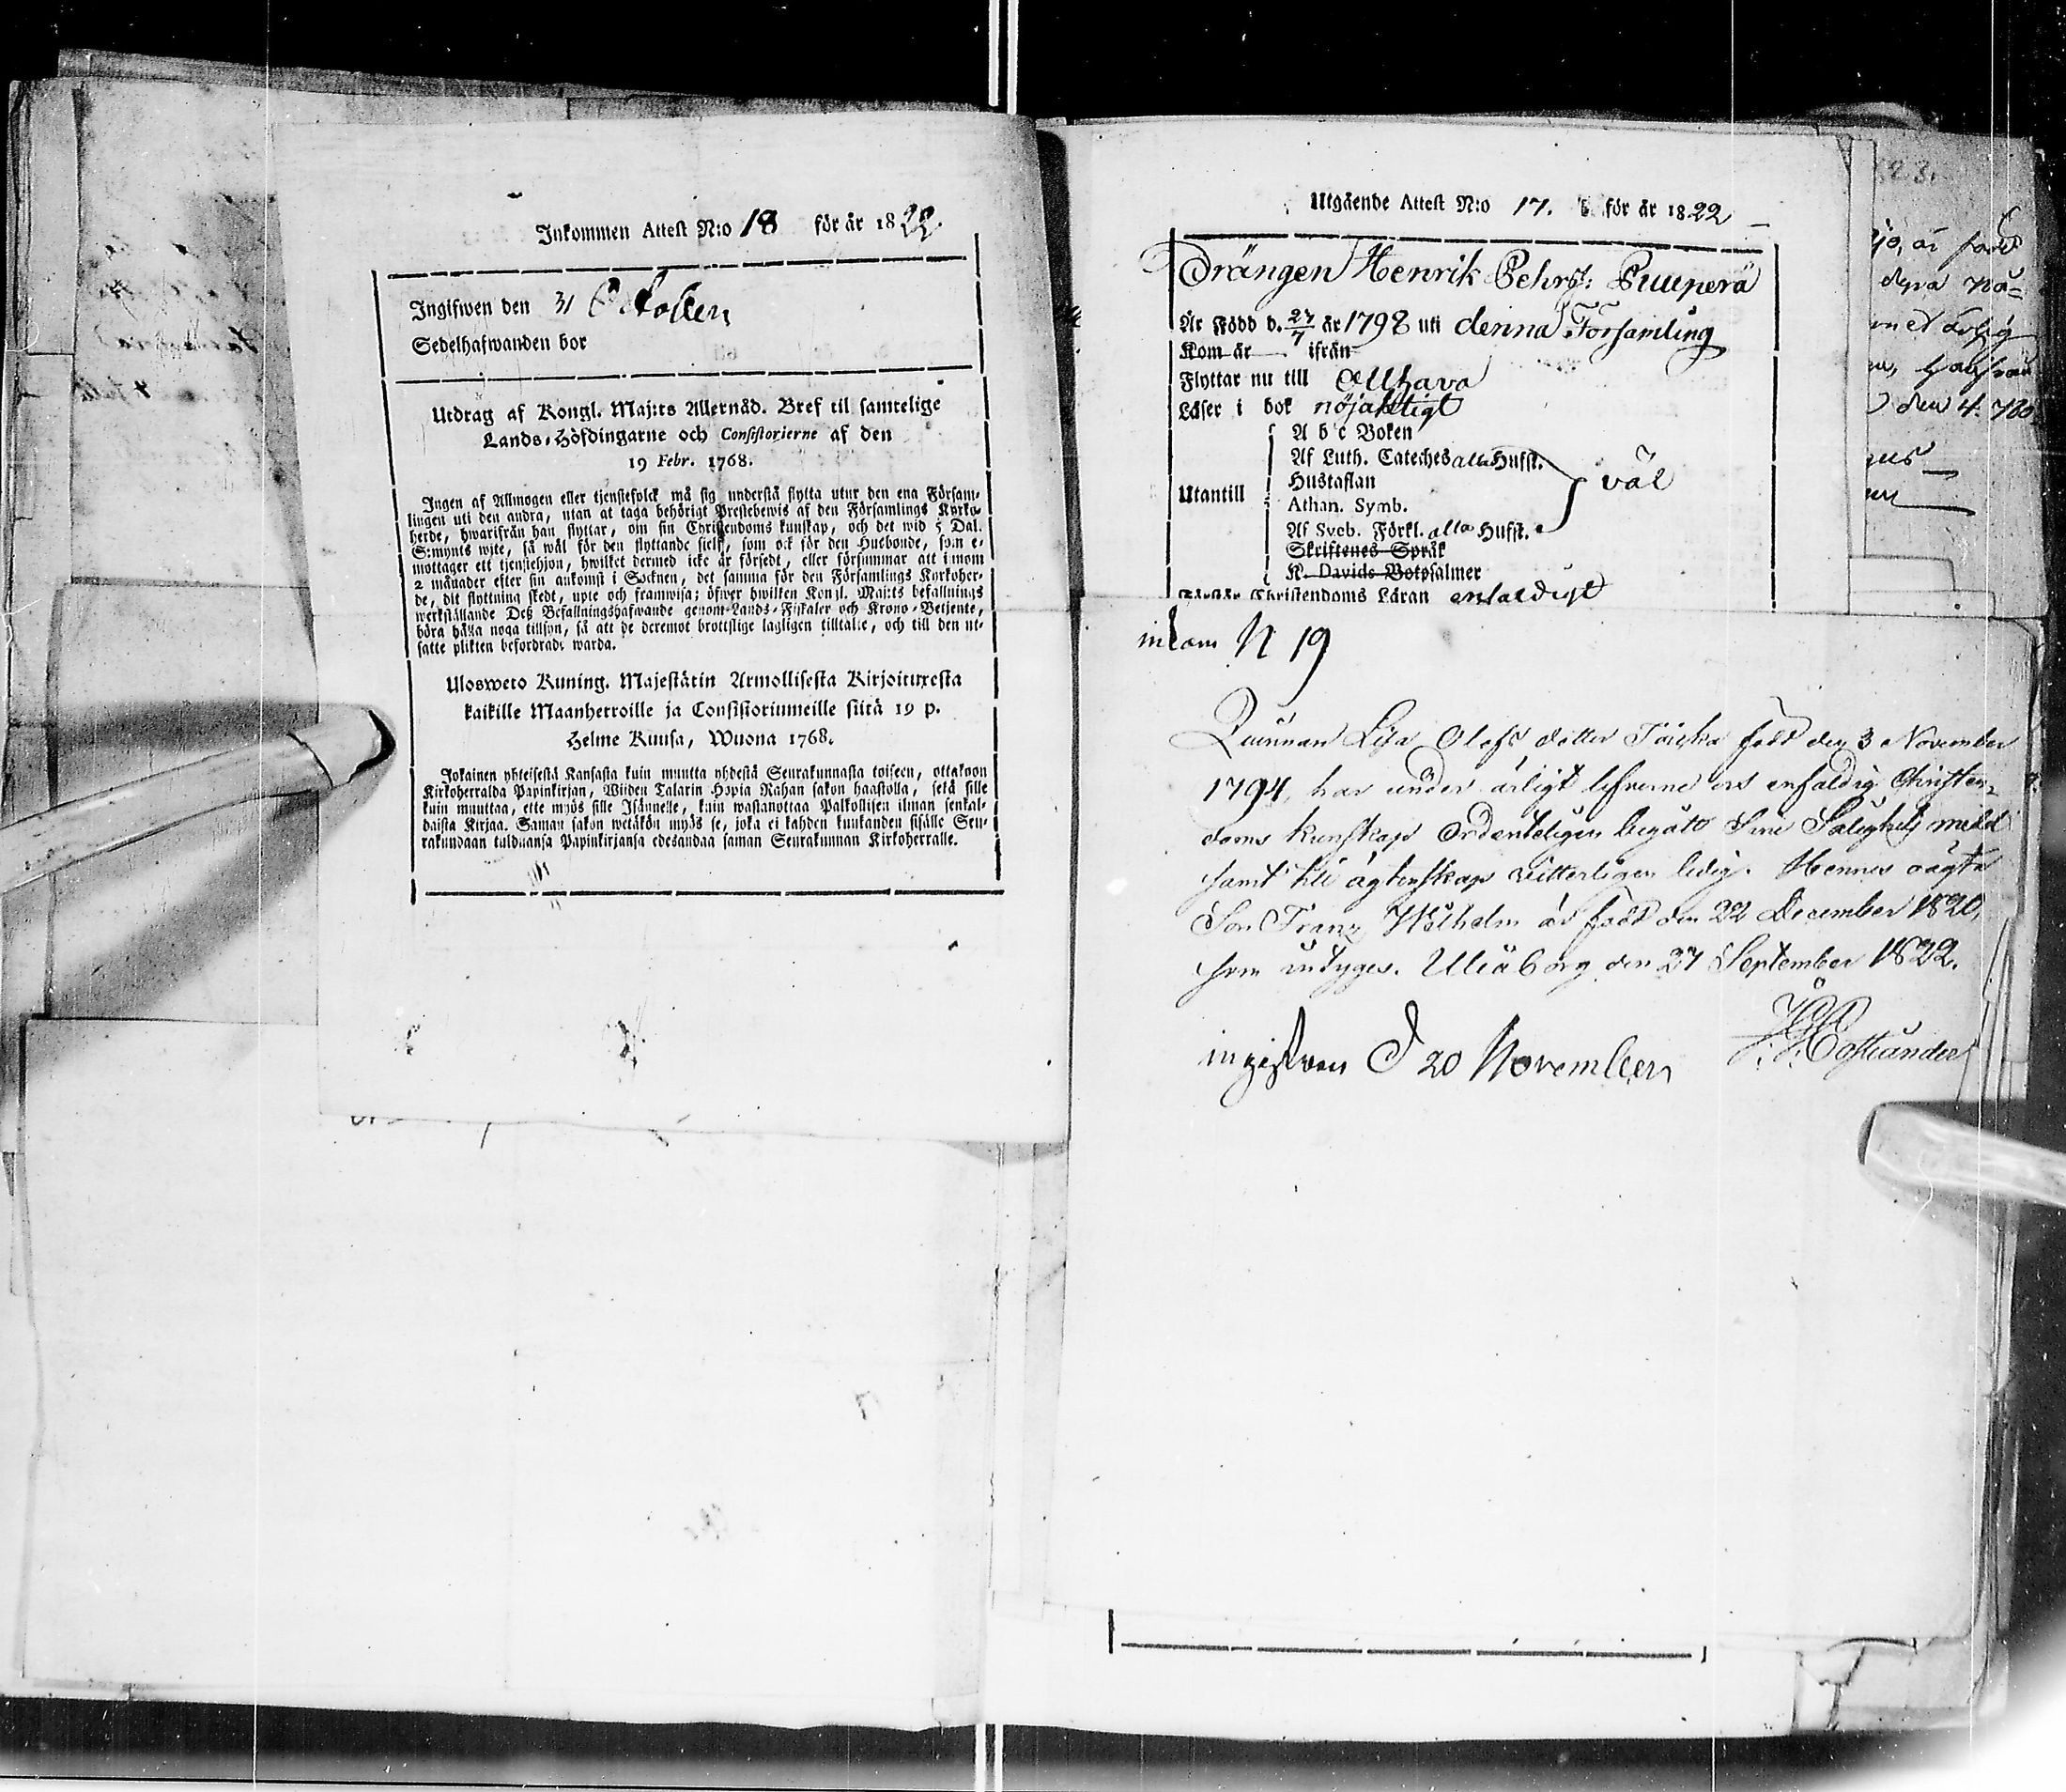 Inkommen Attest N:o 18 för år 1822.
Ingifwen den 31 October
Sedelhafwanden bor
Utdrag af Kongl. Maj:ts Allernåd. Bref til samtelige
Lands-Höfdingarne och Consistorierne af den
19 Febr. 1768.
Ingen af Allmogen eller tjenstefolck må sig understå flytta utur den ena Försam-
lingen uti den andra, utan at taga behörigt Prestebewis af den Församlings Kyrko-
herde, hwarifrån han flyttar, om sin Christendoms kunskap, och det wid 5 Dal.
S:mynts wite, så wäl för den flyttande sielf, som ock för den Husbonde, som e-
mottager ett tjenstehjon, hwilket dermed icke är försedt, eller försummar att innom
2 månader efter sin ankomst i Socknen, det samma för den Församlings Kyrkoher-
de, dit flyttning skedt, upte och framwisa; öfwer hwilken Kongl. Maj:ts befallnings
werkställande Deß Befallningshafwande genom Lands-Fiskaler och Krono-Betjente,
böra hålla noga tillsyn, så att de deremot brottslige lagligen tilltalte, och till den ut-
satte plikten befordrade warda.
Ulosweto Kuning. Majestätin Armollisesta Kirjoituxesta
kaikille Maanherroille ja Consistoriumeille siitä 19 p.
Helme Kuusa, Wuona 1768.
Jokainen yhteisestä Kansasta kuin muutta yhdestä Seurakunnasta toiseen, ottakoon
Kirkoherralda Papinkirjan, Wiiden Talarin Hopia Rahan sakon haastolla, sekä sille
kuin muuttaa, ette myös sille Isännelle, kuin wastanottaa Palkollisen ilman senkal-
daista Kirjaa. Saman sakon wetäkön myös se, joka ei kahden kuukauden sisälle Seu-
rakundaan tulduansa Papinkirjansa edesandaa saman Seurakunnan Kirkoherralle.
Utgående Attest N:o 17. för år 1822
Drängen Henrik Pehrs: Puuperä
Är Född d. 27/7 år 1798 uti denna Församling
Kom år ifrån
Flyttar nu till
Läser i bok nöjaktigt
A b c Boken
Af Luth. Cateches alla Hufst.
Hustaflan
Utantill väl
Athan. Symb.
Af Sveb. Förkl. alla Hufst.
Skriftenes Språk
K. Davids Botpsalmer
Förstår Christendoms Läran enfaldigt
inkom N 19
Quinnan Lisa Olofs dotter född den 3 November
1794, har under ärligt lefverne och enfaldig Christen-
doms kunskap Ordenteligen begått Sine Salighets medel
samt till ägtenskap vitterligen ledig. Hennes oägta
Son Franz Wilhelm är född den 22 December 1820,
som intygas. Uleåborg den 27 September 1822.
ingifven d 20 November